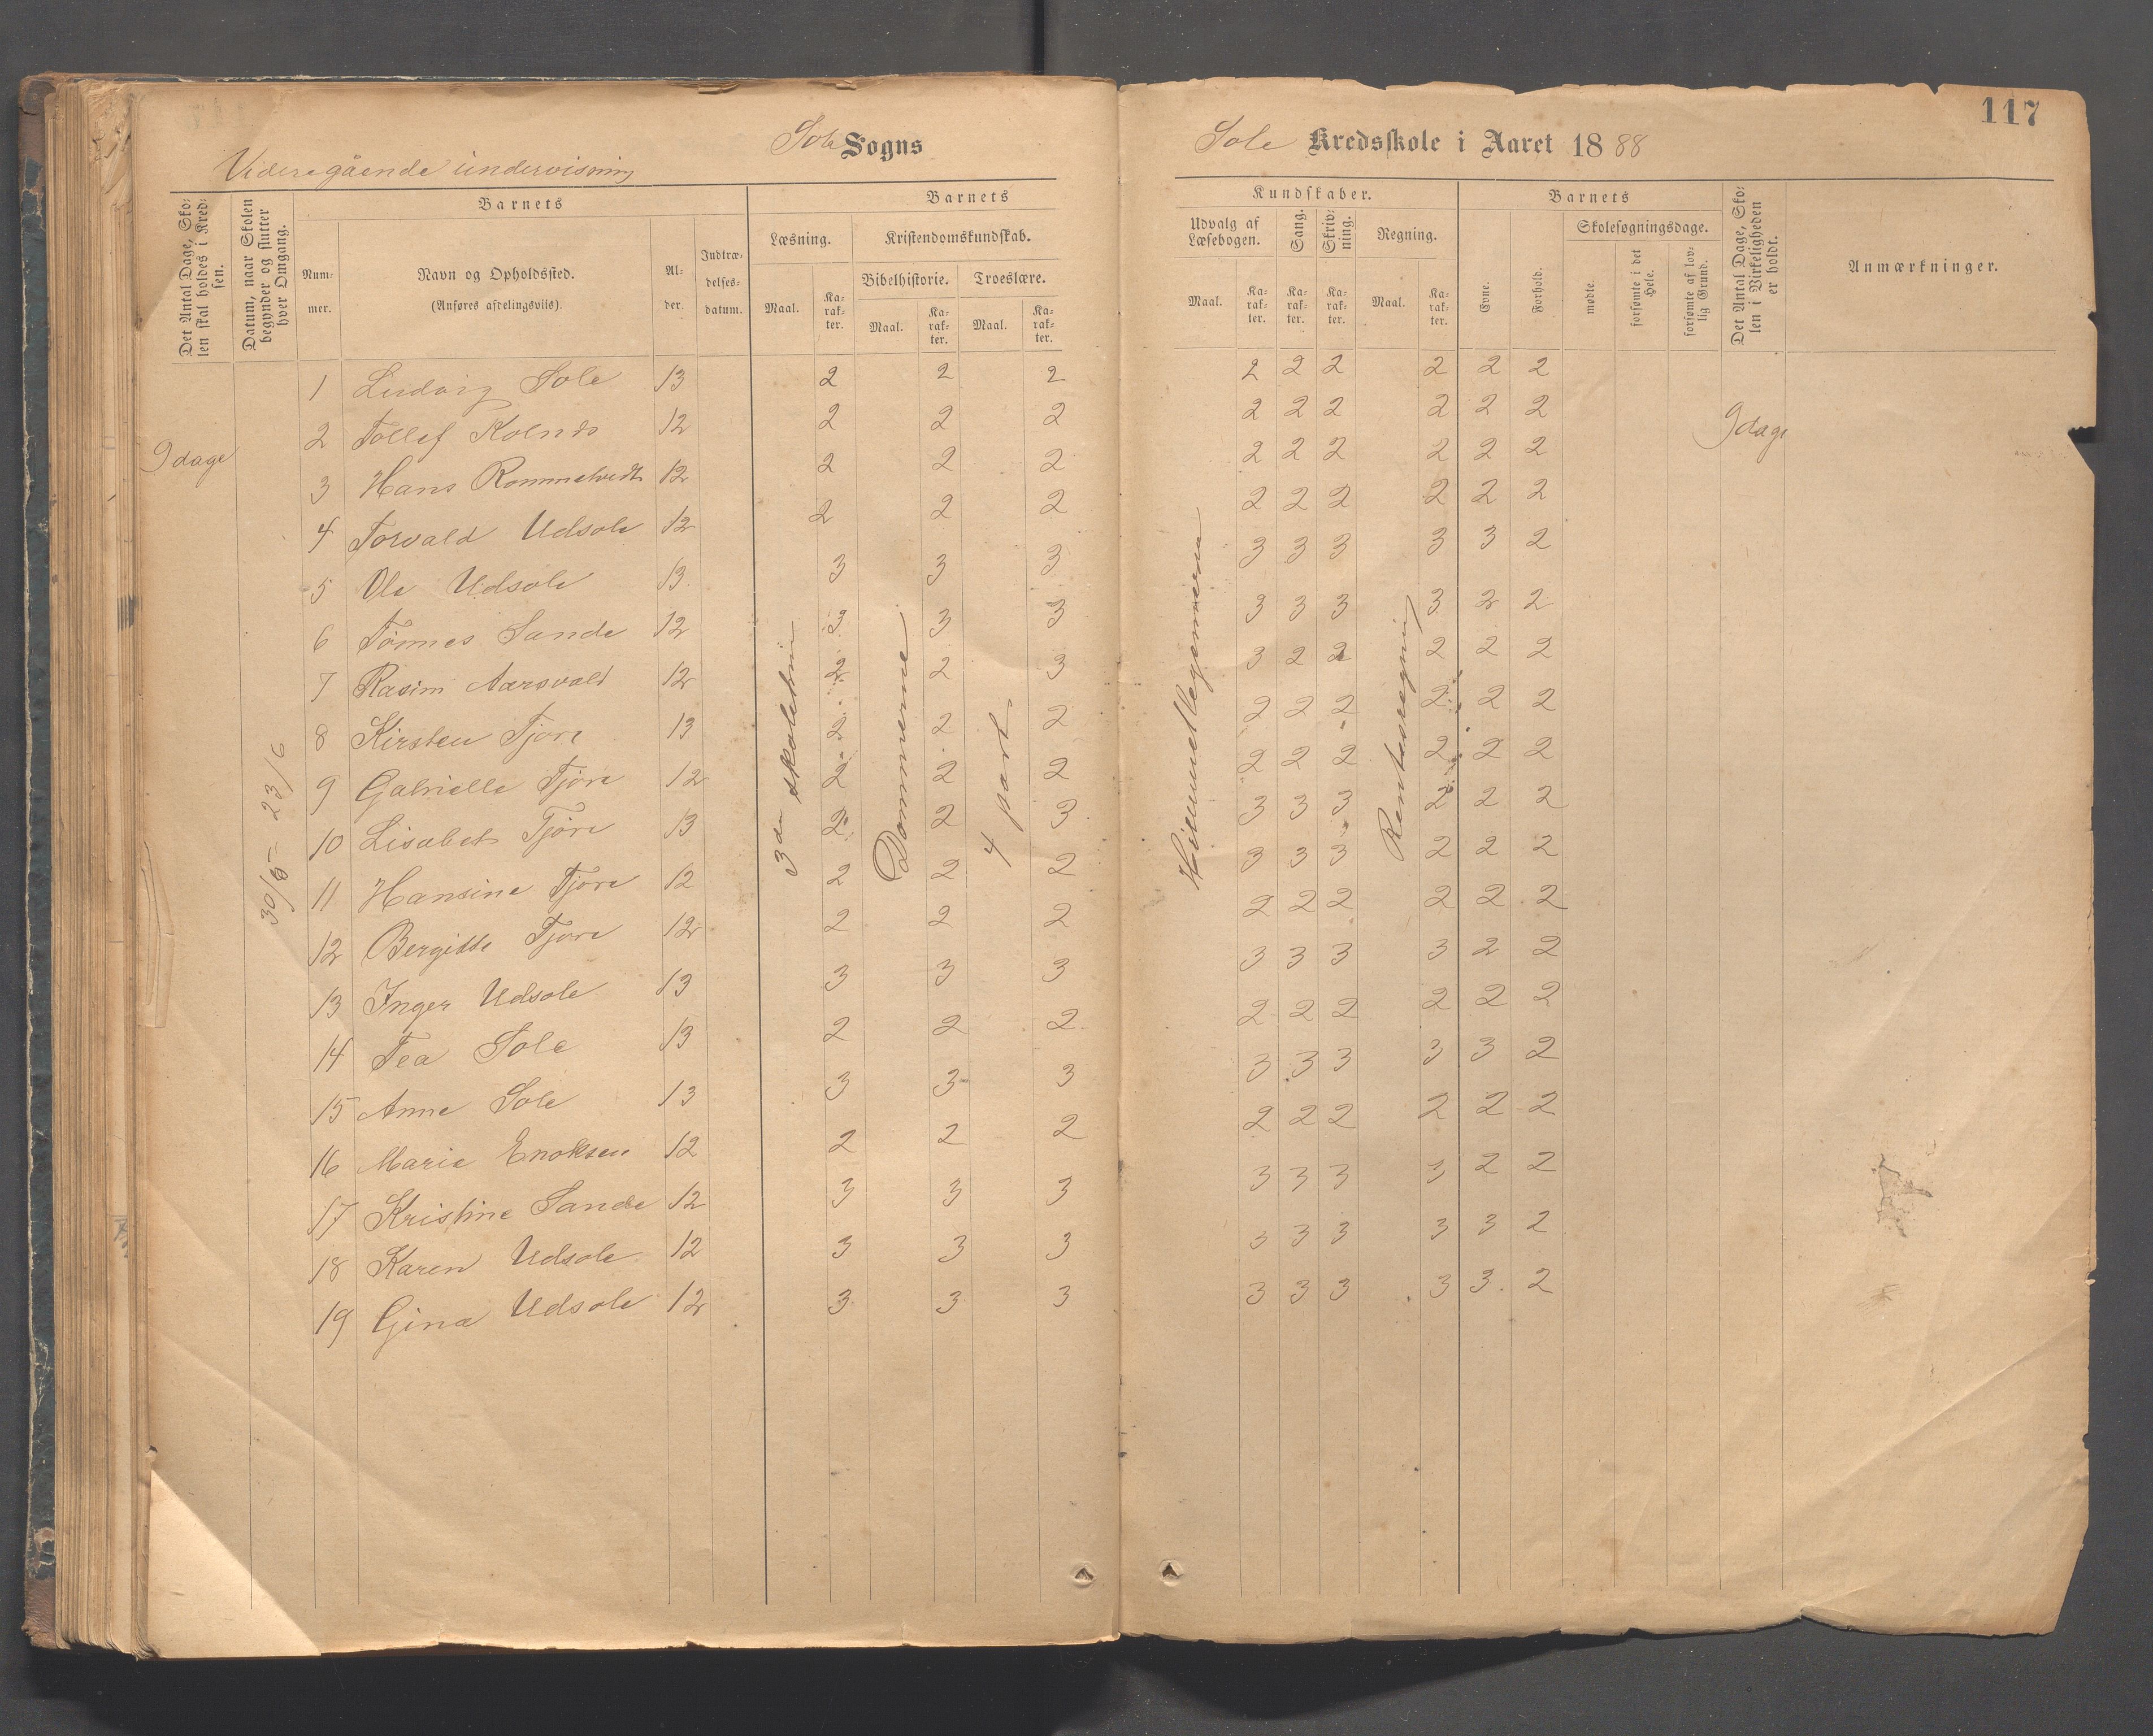 117
Sole Sogns
Sole Kredsskole i Aaret 1888
Videregående undervisning
Det Antal Dage, Skolen skal holdes i Kredsen.
Datum, naar Skolen begynder og slutter hver Omgang.
Barnets
Nummer.
Navn og Opholdssted.
(Anføres afdelingsvis).
Alder.
Indtrædelsesdatum.
Barnets
Læsning.
Maal.
Karakter.
Kristendomskundskab.
Bibelhistorie.
Maal.
Karakter.
Troeslære.
Maal.
Karakter.
Kundskaber.
Udvalg af Læsebogen.
Maal.
Karakter.
Sang.
Karakter.
Skrivning.
Karakter.
Regning.
Maal.
Karakter.
Barnets
Evne.
Forhold.
Skolesøgningsdage.
mødte.
forsømte i det Hele.
forsømte af lovlig Grund.
Det Antal Dage, Skolen i Virkeligheden er holdt.
Anmærkninger.
9 dage
30/5 - 23/6
3die skoletrin
Dommerne
4 part
Renteregning
9 dage
1 Ludvig Sole 13 2 2 2 2 2 2 2 2 2
2 Tollef Kolnes 12 2 2 2 2 2 2 2 2 2
3 Hans Rommetvedt 12 2 2 2 2 2 2 2 2 2
4 Torvald Udsole 12 2 2 2 2 2 2 2 2 2
5 Ole Udsole 13 3 3 3 3 3 3 3 3 2
6 Tönnes Sande 12 3 3 3 3 3 3 3 2 2
7 Rasim Aarsvold 12 2 2 3 3 2 2 2 2 2
8 Kirsten Tjore 13 2 2 2 2 2 2 2 2 2
9 Gabrielle Tjöre 12 2 2 2 2 2 2 2 2 2
10 Lisabet Tjöre 13 2 2 3 3 3 3 2 2 2
11 Hansine Tjore 12 2 2 2 3 3 3 2 2 2
12 Bergitte Tjore 12 2 2 2 2 2 2 2 2 2
13 Inger Udsole 13 3 3 3 3 3 3 3 2 2
14 Tea Sole 13 2 2 2 2 2 2 2 2 2
15 Anne Sole 13 3 3 3 3 3 3 3 3 2
16 Marie Enoksen 12 2 2 2 2 2 2 2 2 2
17 Kristine Sande 12 3 3 3 3 3 3 3 2 2
18 Karen Udsole 12 3 3 3 3 3 3 3 3 2
19 Gina Udsole 12 3 3 3 3 3 3 3 3 2